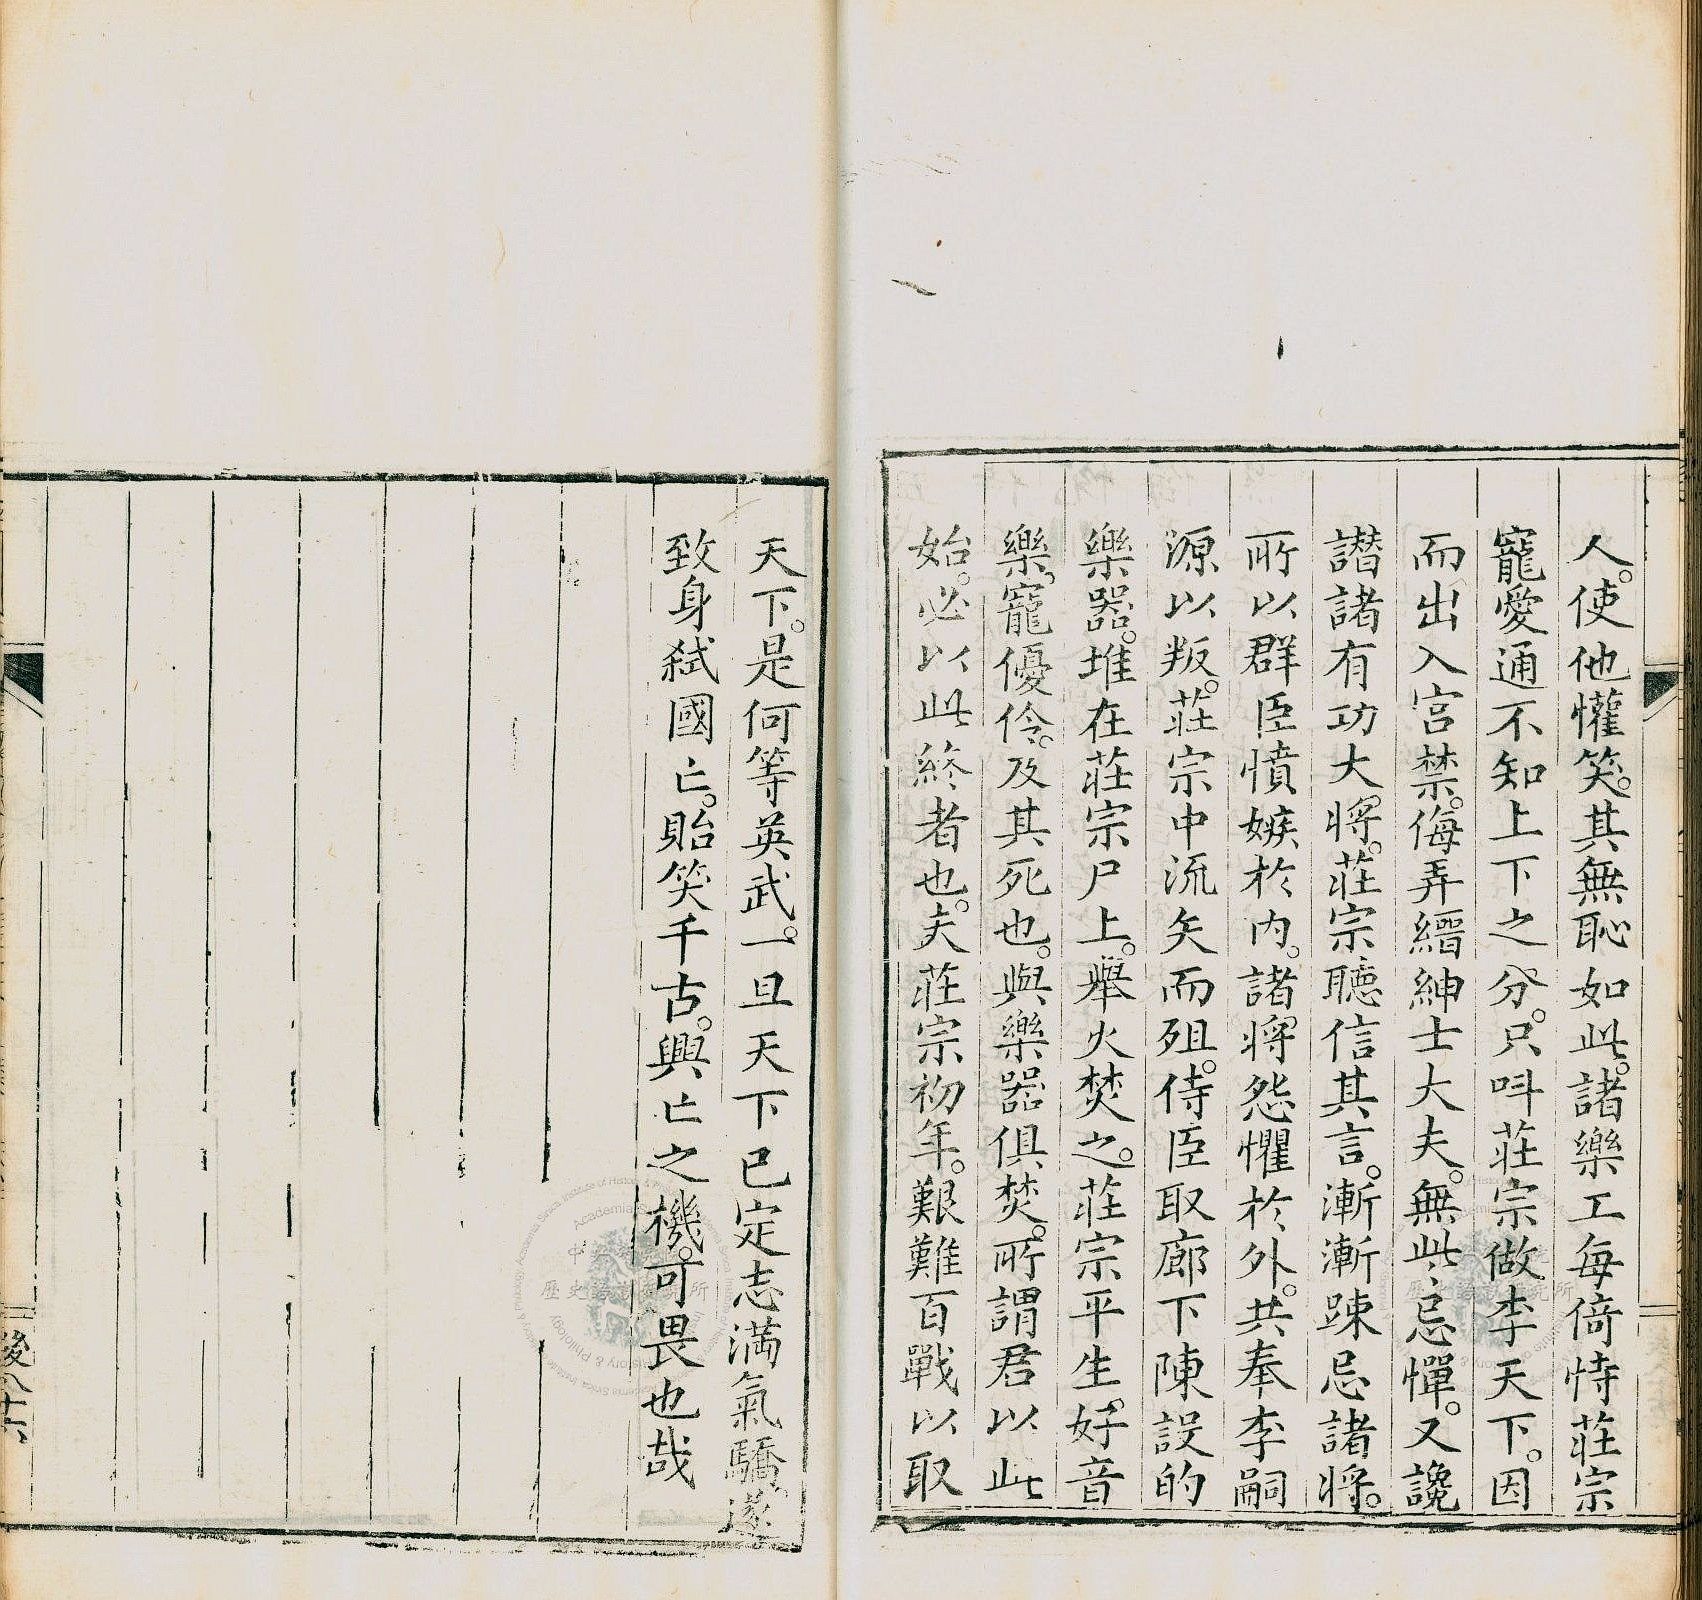 人。使他懽笑。其無恥如此。諸樂工每倚恃莊宗
寵愛通不知上下之分。只呌莊宗做李天下。因
而出入宮禁。侮弄縉紳士大夫。無此忌憚。又讒
譖諸有功大將。莊宗聽信其言。漸漸踈忌諸將。
所以群臣憤嫉於內。諸將怨懼於外。共奉李嗣
源以叛。莊宗中流矢而殂。侍臣取廊下陳設的
樂器。堆在莊宗尸上。舉火焚之。莊宗平生。好音
樂。寵優伶。及其死也。與樂器俱焚。所謂君以此
始。必以此終者也。夫莊宗初年。艱難百戰以取
天下。是何等英武。一旦天下已定志滿氣驕。遂
致身弒國亡。貽笑千古。興亡之機。可畏也哉
後八十六